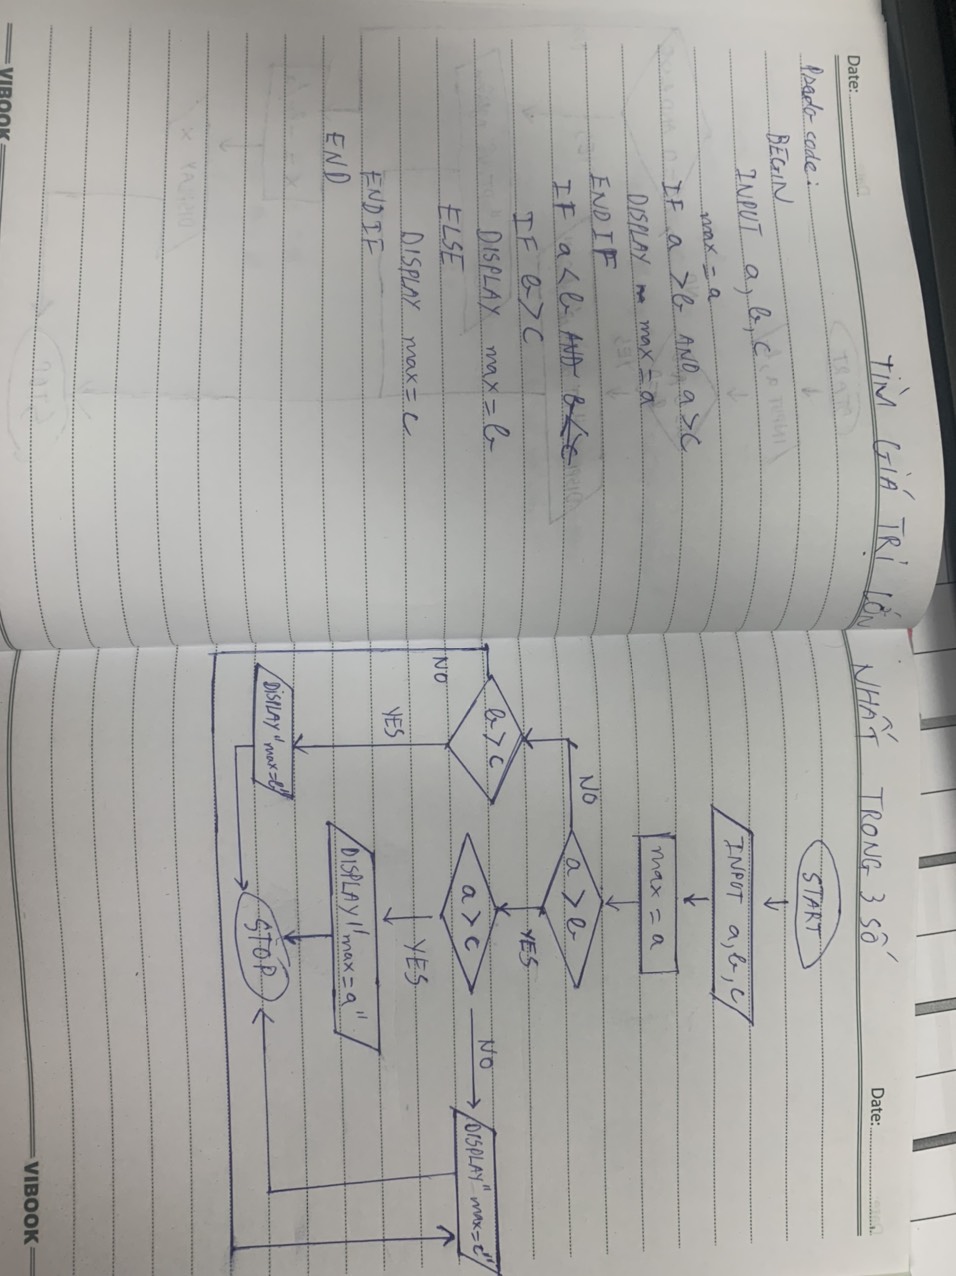 TÌM GIÁ TRỊ LỚN NHẤT TRONG 3 SỐ
Date:
Psedo code:
BEGIN
INPUT a, b, c
max = a
IF a > b AND a > c
DISPLAY max = a
END IF
IF a < b AND b < c
IF b > c
DISPLAY max = b
ELSE
DISPLAY max = c
END IF
END
VIBOOK
Date:
START
INPUT a, b, c
max = a
a > b
NO
YES
b > c
a > c
NO
DISPLAY "max = c"
NO
YES
YES
DISPLAY "max = a"
DISPLAY "max = b"
STOP
VIBOOK